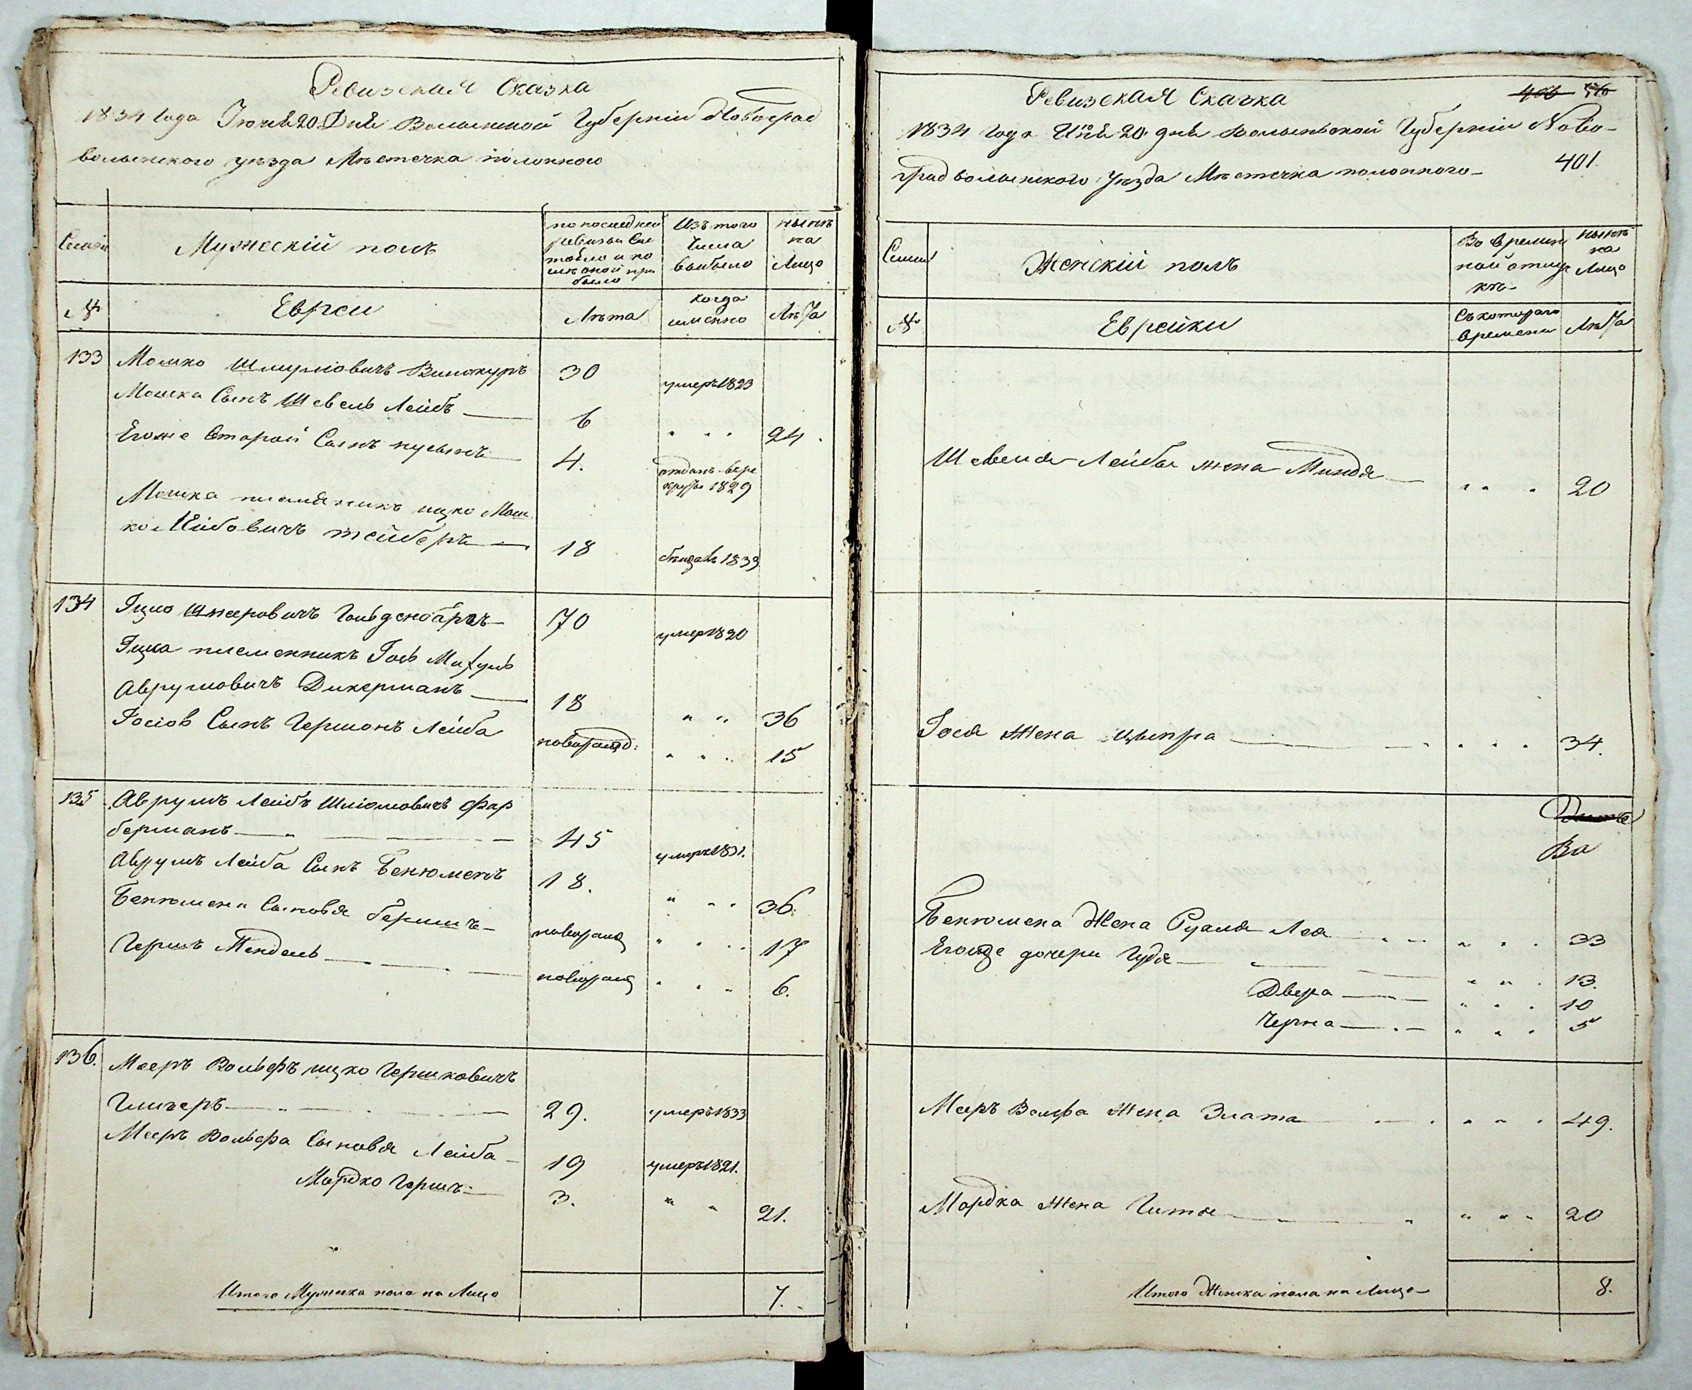 Ревизская Сказка
1834 Года Июня 20 Дня Волынской Губернии Новоград
волынского уезда Местечка полонного
Семьи
Мужеский полъ
по последней ревизии состояло и после оной прибыло
Изъ того числа выбыло
ныне на Лицо
№
Евреи
Лета
когда именно
Лета
133 Мошко Шмулiовичъ Винокуръ 30 умеръ 1823
Мошка Сынъ Шевель Лейбъ 6 24.
Егоже Второй Сынъ нусынъ 4. отданъ в рекруты 1829
Мошка племяникъ ицко Мош
ко Лейбовичъ тейберъ 18 бежалъ 1833
134 Ицко Шмеровичъ Гольденбергъ 70 умеръ 1820
Ицка племенникъ Iось Михуль
Аврумовичъ Дикерманъ 18 36
Iосiов Сынъ Гершонъ Лейба новорожд: 15
135 Аврумъ Лейбъ Шлiомовичъ Фар
берманъ 45 умеръ 1831.
Аврумъ Лейба Сынъ Бенюменъ 18. 36.
Бенюмена Сыновья Бершъ новорожд 17
Гершъ Мендель новорожд 6.
136. Мееръ Вольфъ ицко Гершковичъ
Глизеръ 29. умеръ 1833
Мееръ Вольфа Сыновья Лейба 19 умеръ 1821.
Мордко Гершъ 3. 21.
Итого Мужеска пола на Лицо 7.
Ревизская Сказка
401.
1834 Года Июня 20 дня Волынской Губернии Ново-
град волынского Уезда Местечка полонного
Семьи
Женский полъ
Во временной отлучке
ныне на Лицо
№
Еврейки
Съ которого времени
Лета
Шевеля Лейбы жена Миндя 20
Iося Жена Ципра 34.
Бенюмена Жена Рухля Лея 33
Егоже дочери Гудя 13.
Двера 10
Черна 5
Мееръ Вольфа Жена Злата 49.
Мордка Жена Гитя 20
Итого Женска пола на Лицо 8.